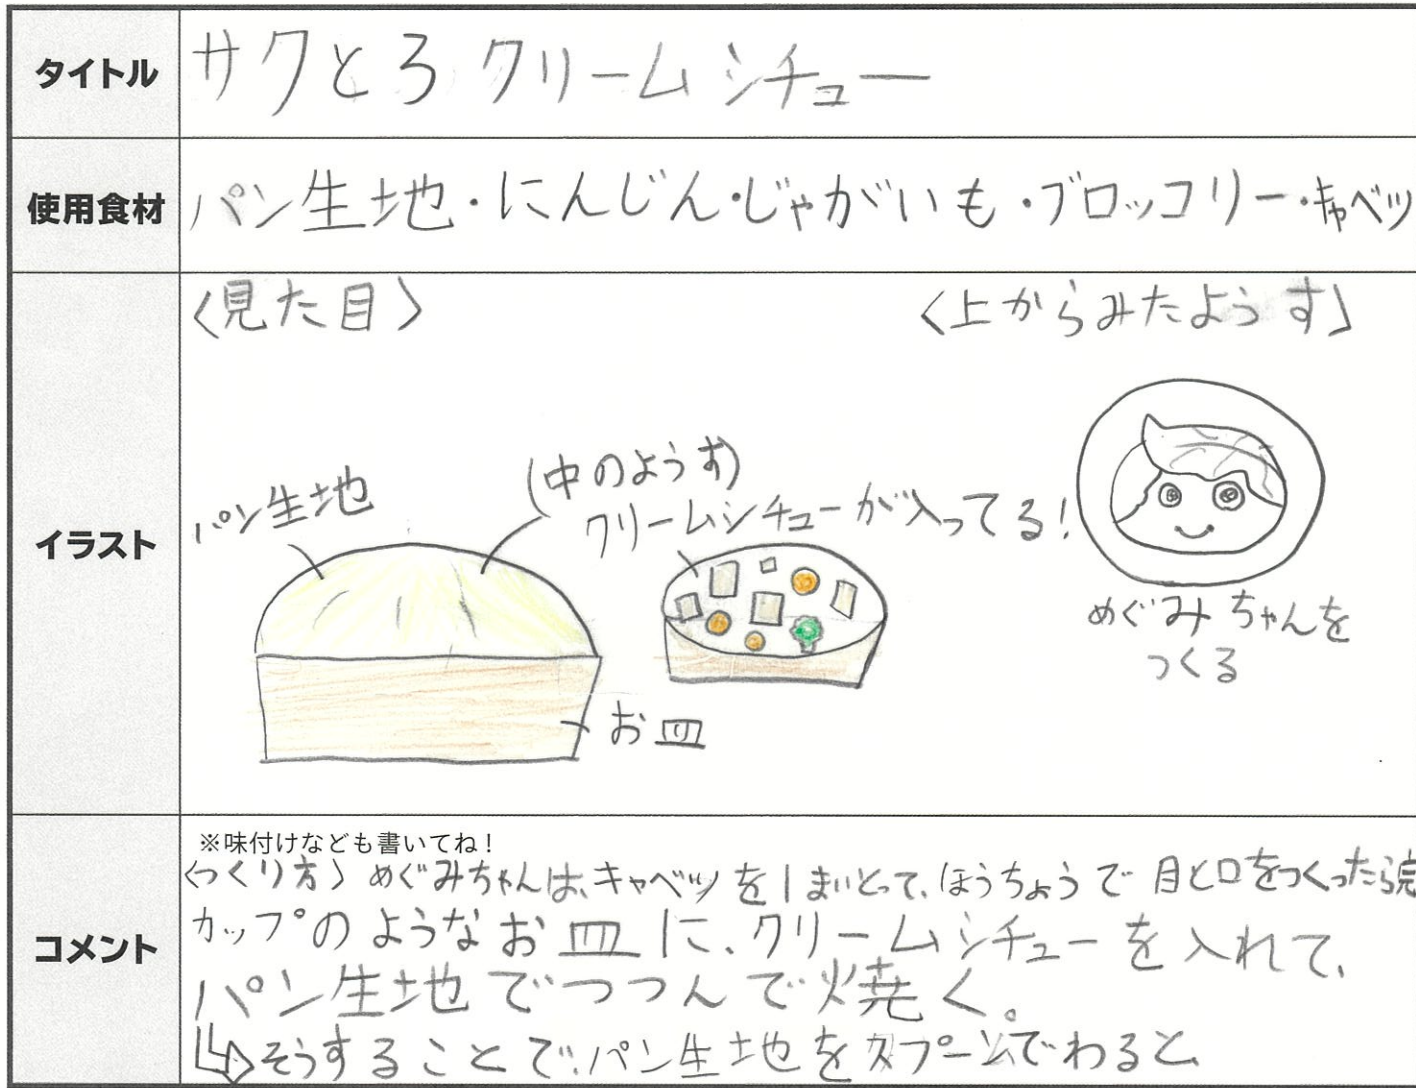 タイトル
サクとろ クリームシチュー
使用食材
パン生地・にんじん・じゃがいも・ブロッコリー・キャベツ
イラスト
〈見た目〉
〈上からみたようす〉
パン生地
(中のようす)
クリームシチューが入ってる!
お皿
めぐみちゃんを
つくる
コメント
※味付けなども書いてね!
〈つくり方〉めぐみちゃんは、キャベツを1まいとって、ほうちょうで目と口をつくったら完
カップのようなお皿に、クリームシチューを入れて、
パン生地でつつんで焼く。
そうすることで、パン生地をスプーンでわると